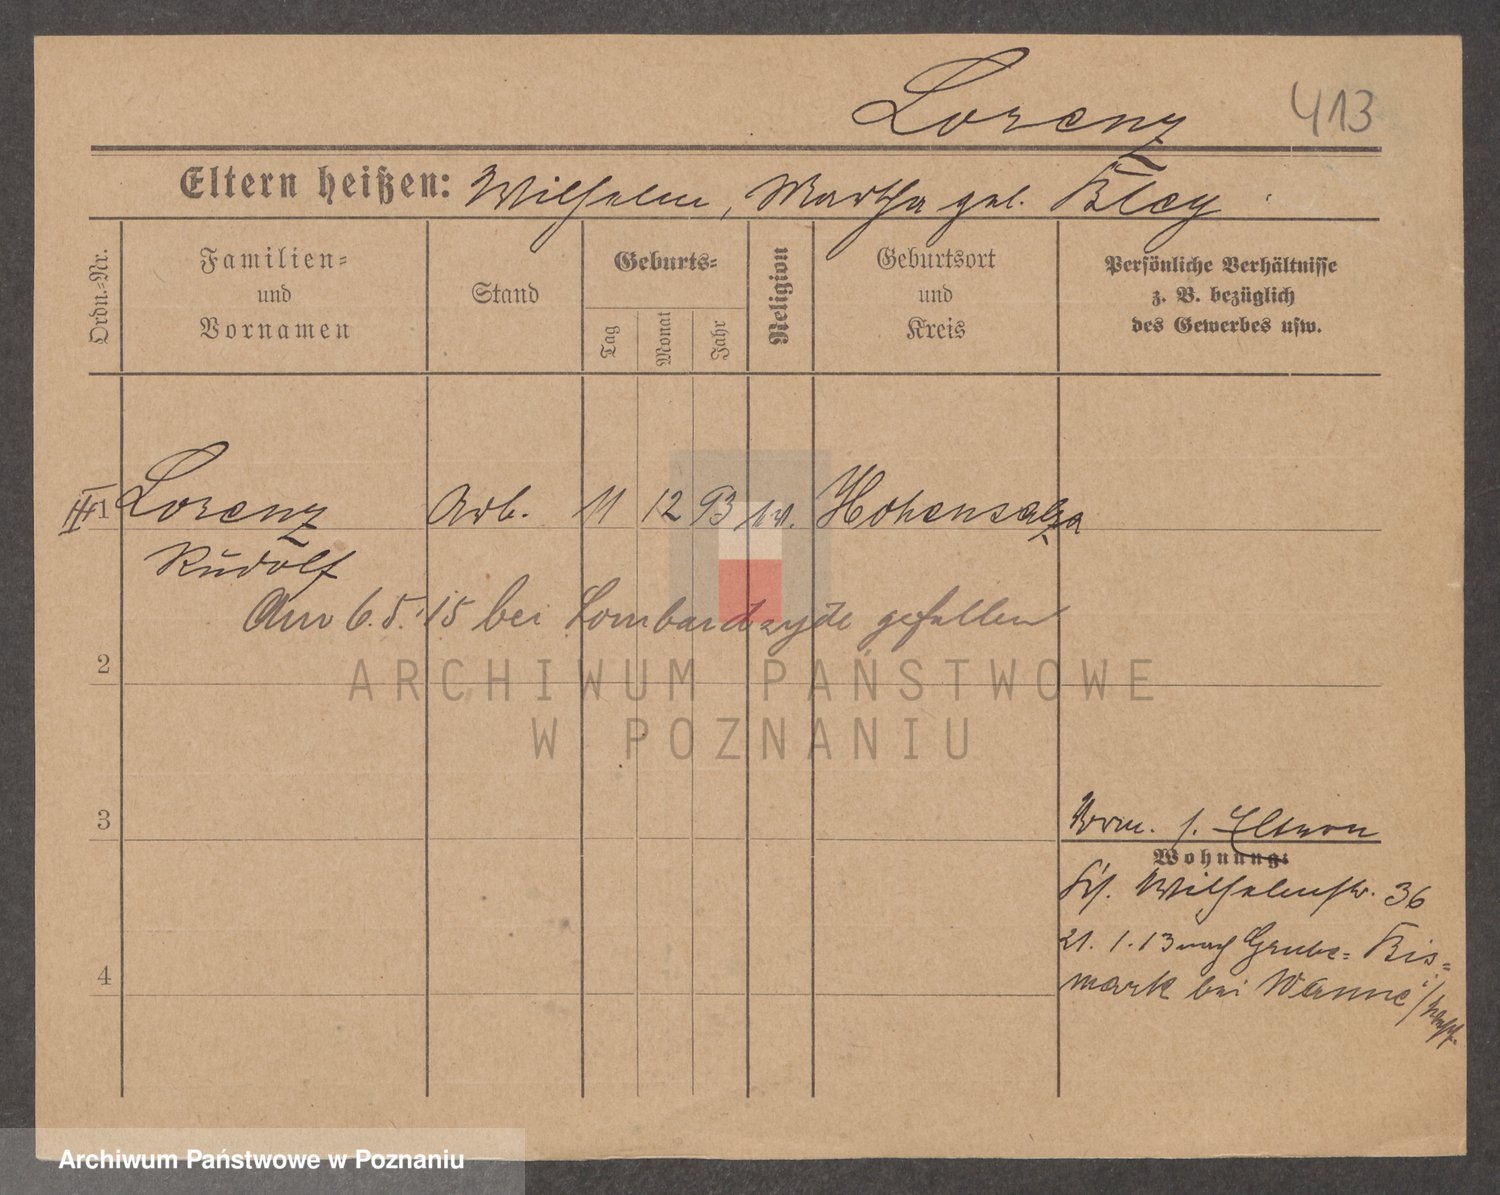 Lorenz 413
Eltern heißen: Wilhelm, Martha geb. Bley
Ordn.-Nr.
Familien-
und
Vornamen
Stand
Geburts-
Tag
Monat
Jahr
Religion
Geburtsort
und
Kreis
Persönliche Verhältnisse
z. B. bezüglich
des Gewerbes usw.
1 Lorenz Arb. 11 12 93 ev. Hohensalza
Rudolf
Am 6.5.15 bei Lombardzyde gefallen
2
ARCHIWUM PAŃSTWOWE
W POZNANIU
3
Vorm. s. Eltern
Wohnung:
Wilhelmstr. 36
21. 1. 13 nach Grube-Bis-
mark bei Wanne
4
Archiwum Państwowe w Poznaniu